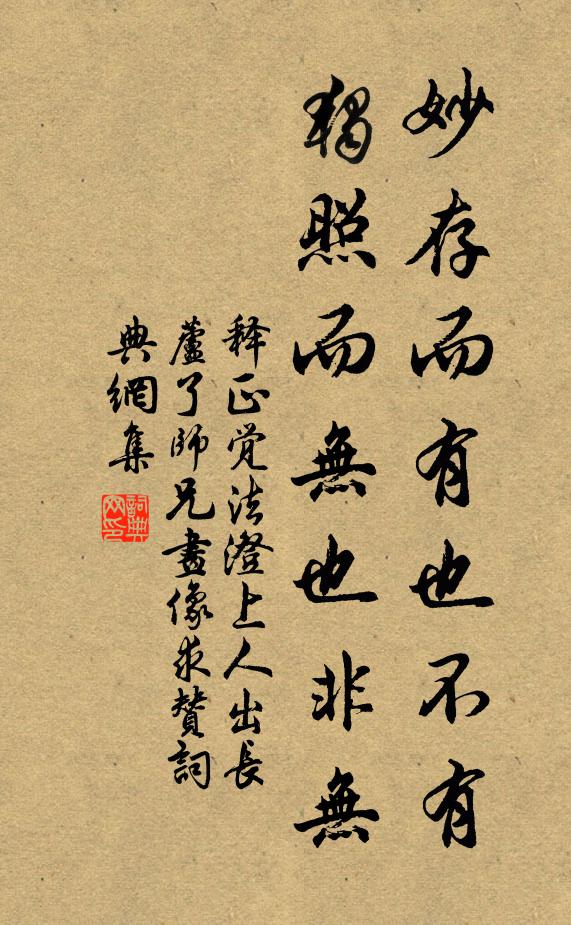 妙存而有也不有
獨照而無也非無
释正觉法澄上人出長
蘆了師兄畫像求贊詞
典網集
詞典网印